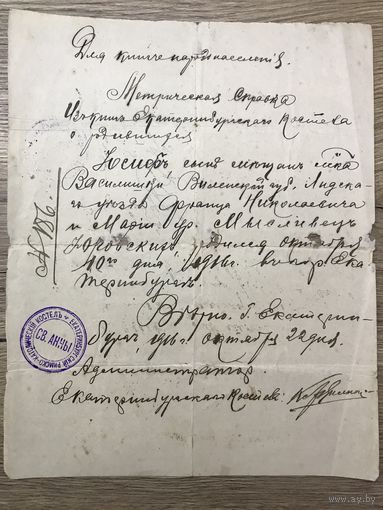 Для книги народонаселенія.
Метрическая Справка
Изъ книгъ Екатеринбургскаго Костела
о родившихся
Іосифъ, сынъ мѣщанъ м-ка
Василишки, Виленской губ. Лидска-
го уѣзда Франца Николаевича
и Маріи ур. Мысливецъ
родился октября
10го дня, 1916 г. въ гор. Ека-
теринбургѣ.
Вѣрно. г. Екатерин-
бургъ, 1916 г. октября 22 дня.
Администраторъ
Екатеринбургскаго Костела:
№ 186.
ЕКАТЕРИНБУРГСКІЙ РИМСКО-КАТОЛИЧЕСКІЙ КОСТЕЛЪ
СВ. АННЫ
www.ay.by